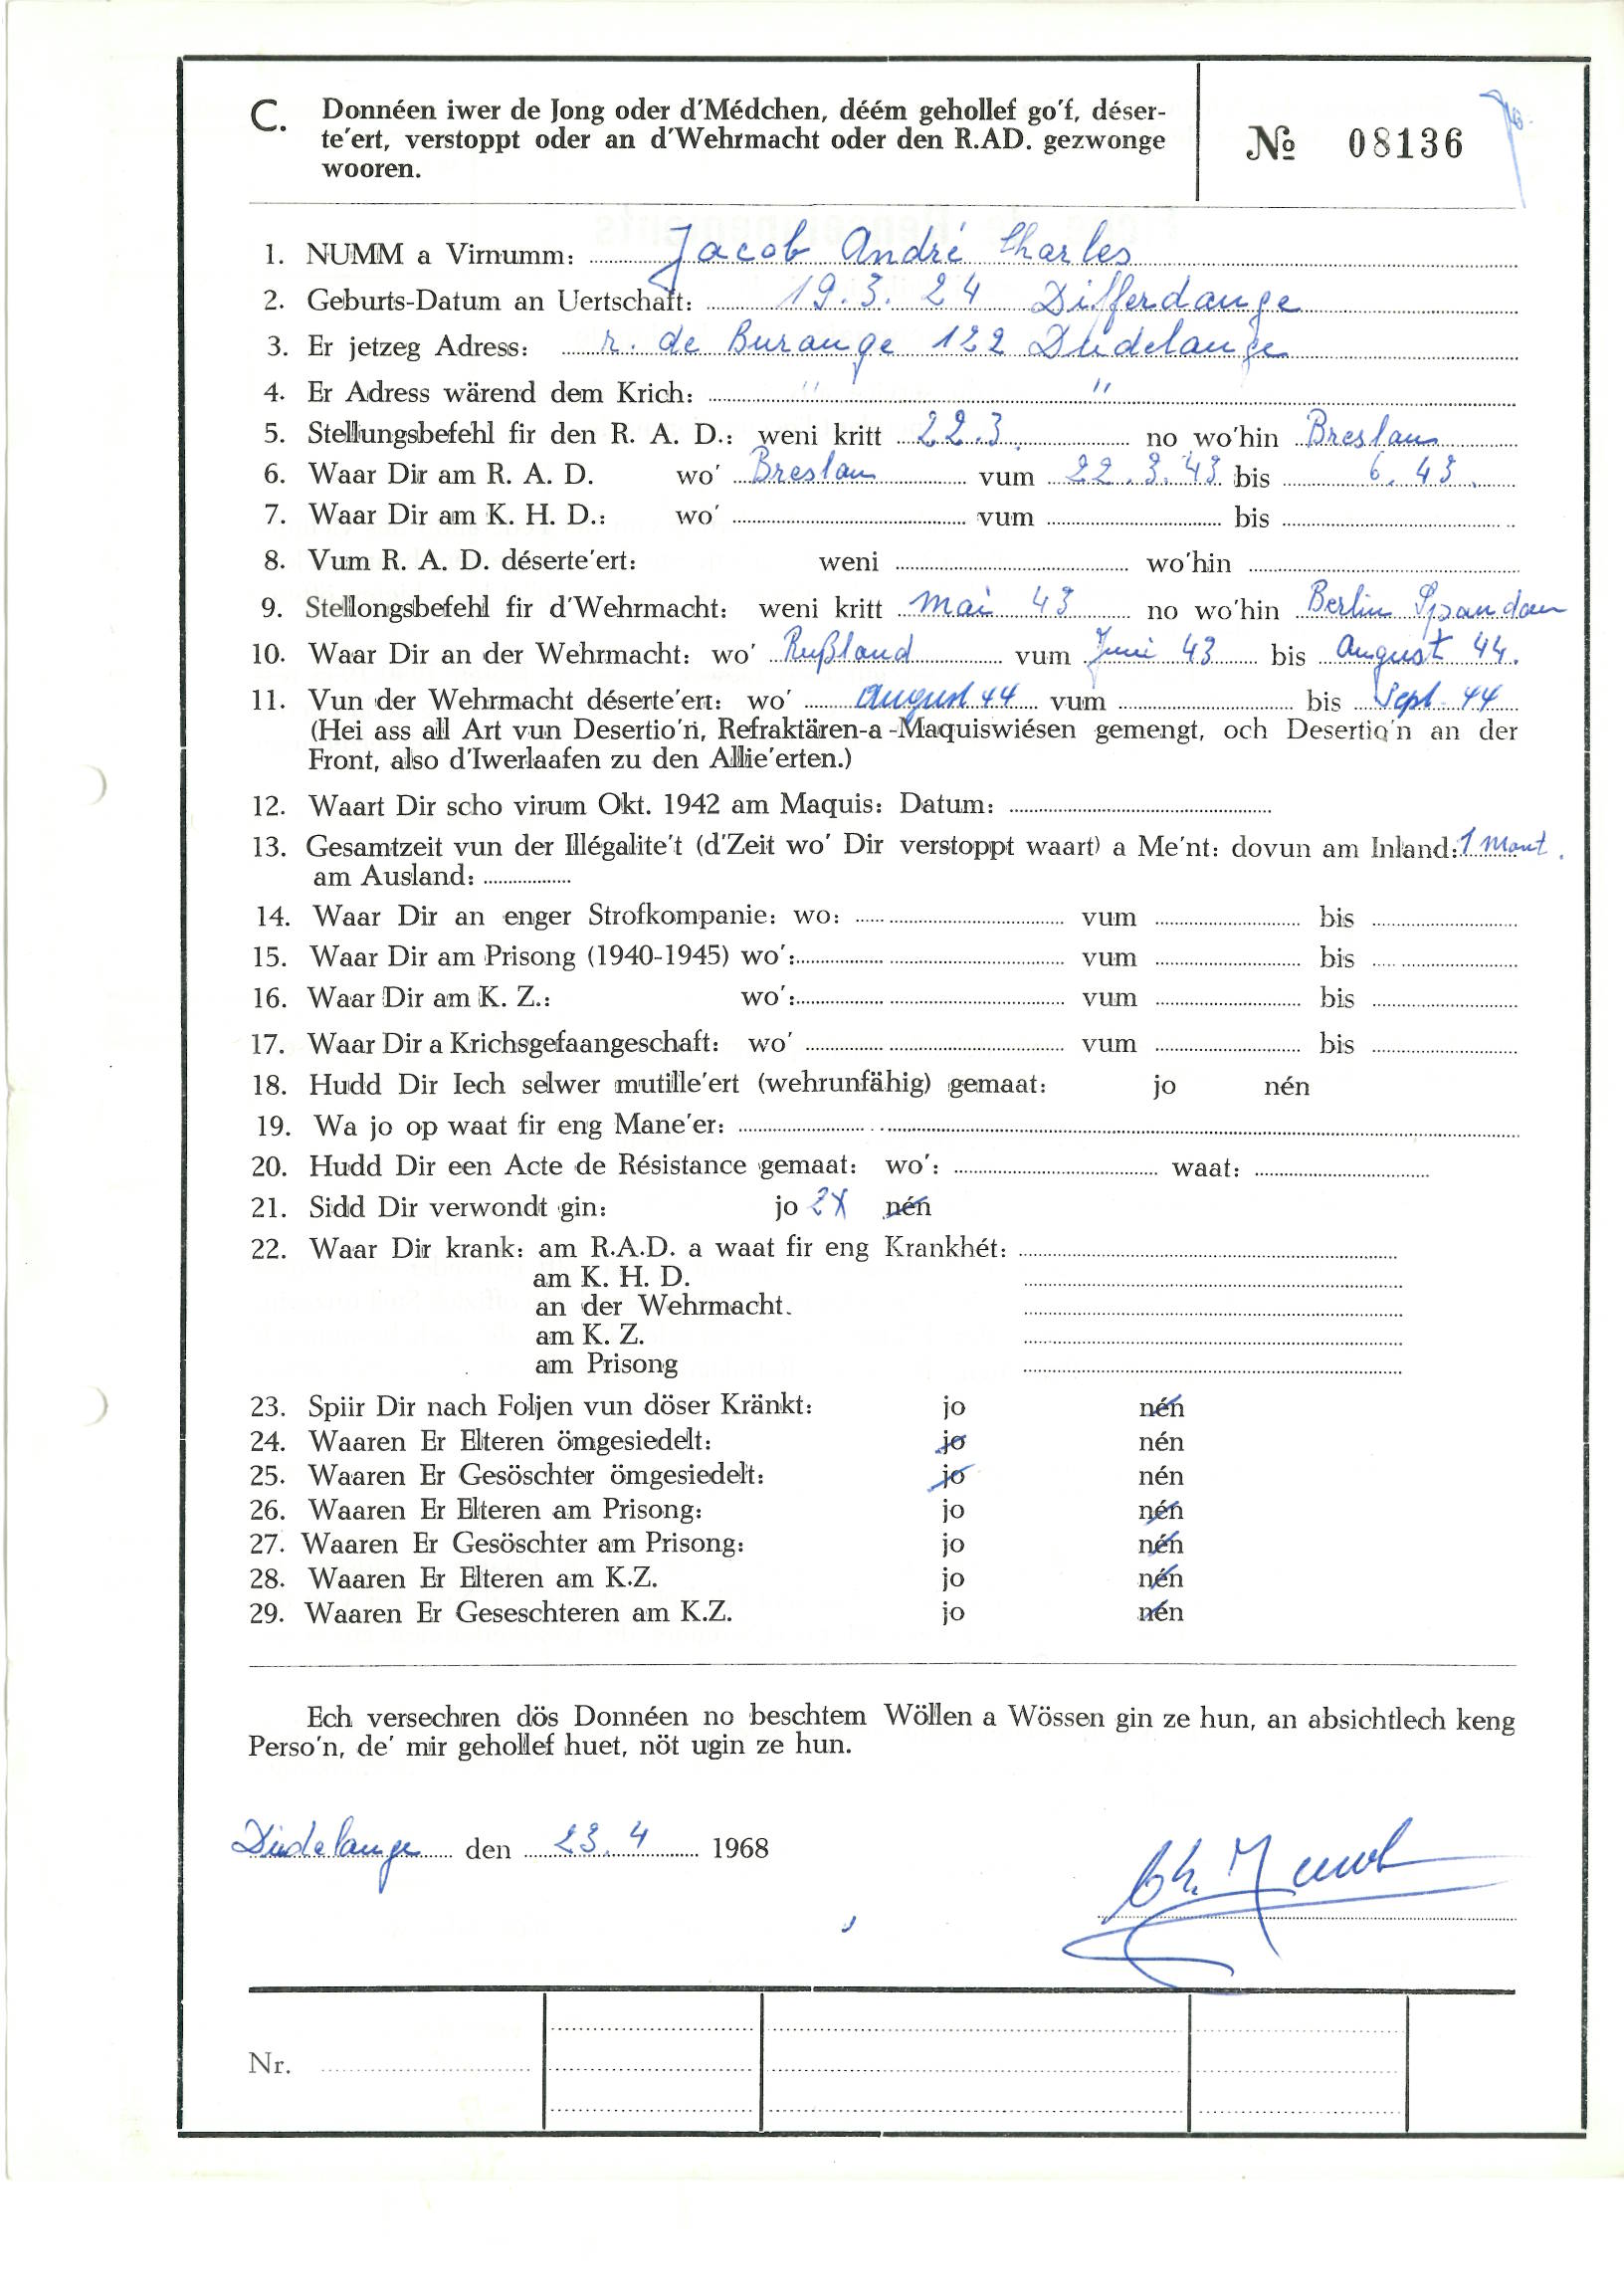 C. Donnéen iwer de Jong oder d'Médchen, déém gehollef go'f, déser-
te'ert, verstoppt oder an d'Wehrmacht oder den R.AD. gezwonge
wooren.
№ 08136
1. NUMM a Virnumm: Jacob André Charles
2. Geburts-Datum an Uertschaft: 19.3.24 Differdange
3. Er jetzeg Adress: r. de Burange 122 Dudelange
4. Er Adress wärend dem Krich: " "
5. Stellungsbefehl fir den R. A. D.: weni kritt 22.3. no wo'hin Breslau
6. Waar Dir am R. A. D. wo' Breslau vum 22.3.43 bis 6.43.
7. Waar Dir am K. H. D.: wo' vum bis
8. Vum R. A. D. déserte'ert: weni wo'hin
9. Stellongsbefehl fir d'Wehrmacht: weni kritt Mai 43 no wo'hin Berlin Spandau
10. Waar Dir an der Wehrmacht: wo' Rußland vum Juni 43 bis August 44.
11. Vun der Wehrmacht déserte'ert: wo' August 44 vum bis Sept. 44
(Hei ass all Art vun Desertio'n, Refraktären-a-Maquiswiésen gemengt, och Desertio'n an der
Front, also d'Iwerlaafen zu den Allie'erten.)
12. Waart Dir scho virum Okt. 1942 am Maquis: Datum:
13. Gesamtzeit vun der Illégalite't (d'Zeit wo' Dir verstoppt waart) a Me'nt: dovun am Inland: 1 Mont.
am Ausland:
14. Waar Dir an enger Strofkompanie: wo: vum bis
15. Waar Dir am Prisong (1940-1945) wo': vum bis
16. Waar Dir am K. Z.: wo': vum bis
17. Waar Dir a Krichsgefaangeschaft: wo' vum bis
18. Hudd Dir Iech selwer mutille'ert (wehrunfähig) gemaat: jo nén
19. Wa jo op waat fir eng Mane'er:
20. Hudd Dir een Acte de Résistance gemaat: wo': waat:
21. Sidd Dir verwondt gin: jo 2X nén
22. Waar Dir krank: am R.A.D. a waat fir eng Krankhét:
am K. H. D.
an der Wehrmacht.
am K. Z.
am Prisong
23. Spiir Dir nach Foljen vun döser Kränkt: jo nén
24. Waaren Er Elteren ömgesiedelt: jo nén
25. Waaren Er Gesöschter ömgesiedelt: jo nén
26. Waaren Er Elteren am Prisong: jo nén
27. Waaren Er Gesöschter am Prisong: jo nén
28. Waaren Er Elteren am K.Z. jo nén
29. Waaren Er Geseschteren am K.Z. jo nén
Ech versechren dös Donnéen no beschtem Wöllen a Wössen gin ze hun, an absichtlech keng
Perso'n, de' mir gehollef huet, nöt ugin ze hun.
Dudelange den 23.4 1968
Ch. Jacob
Nr.